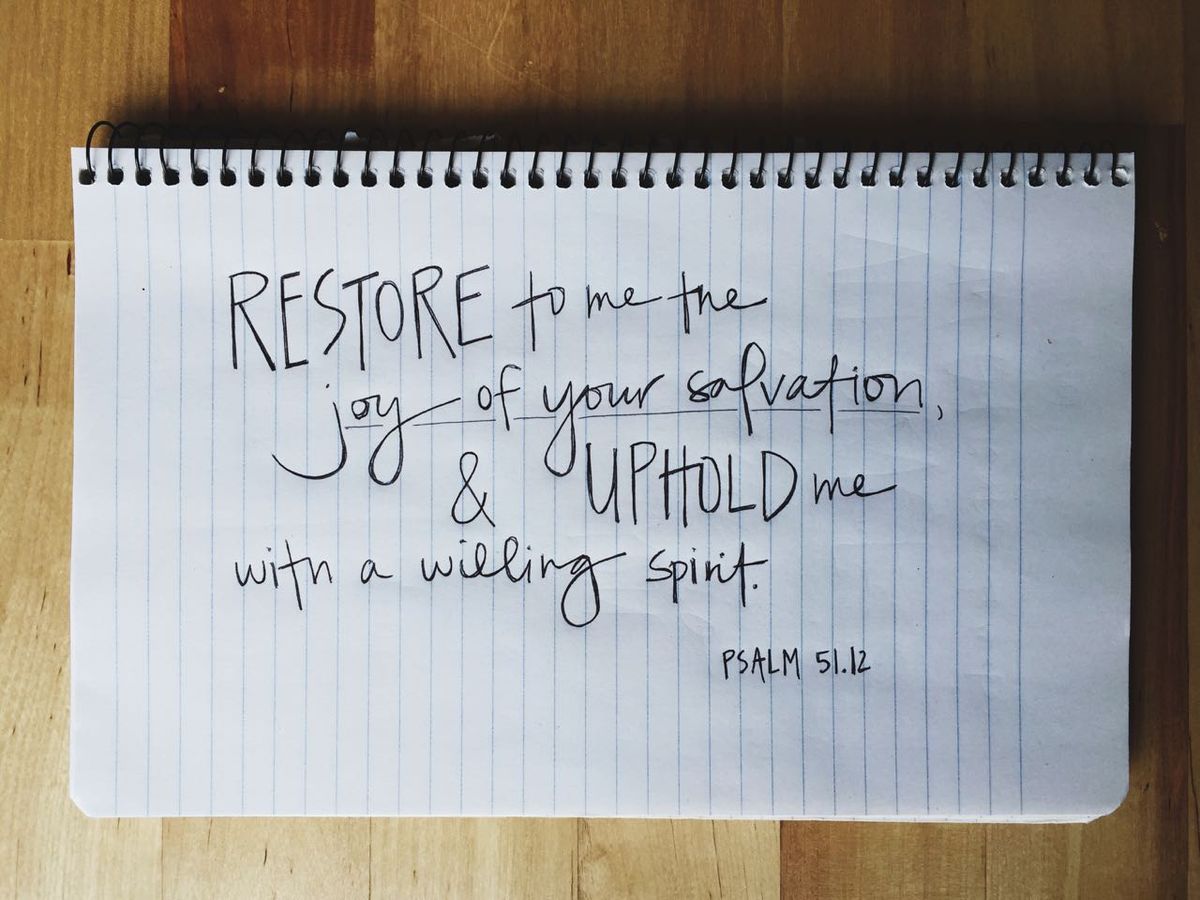 RESTORE to me the
joy of your salvation,
& UPHOLD me
with a willing spirit.
PSALM 51.12